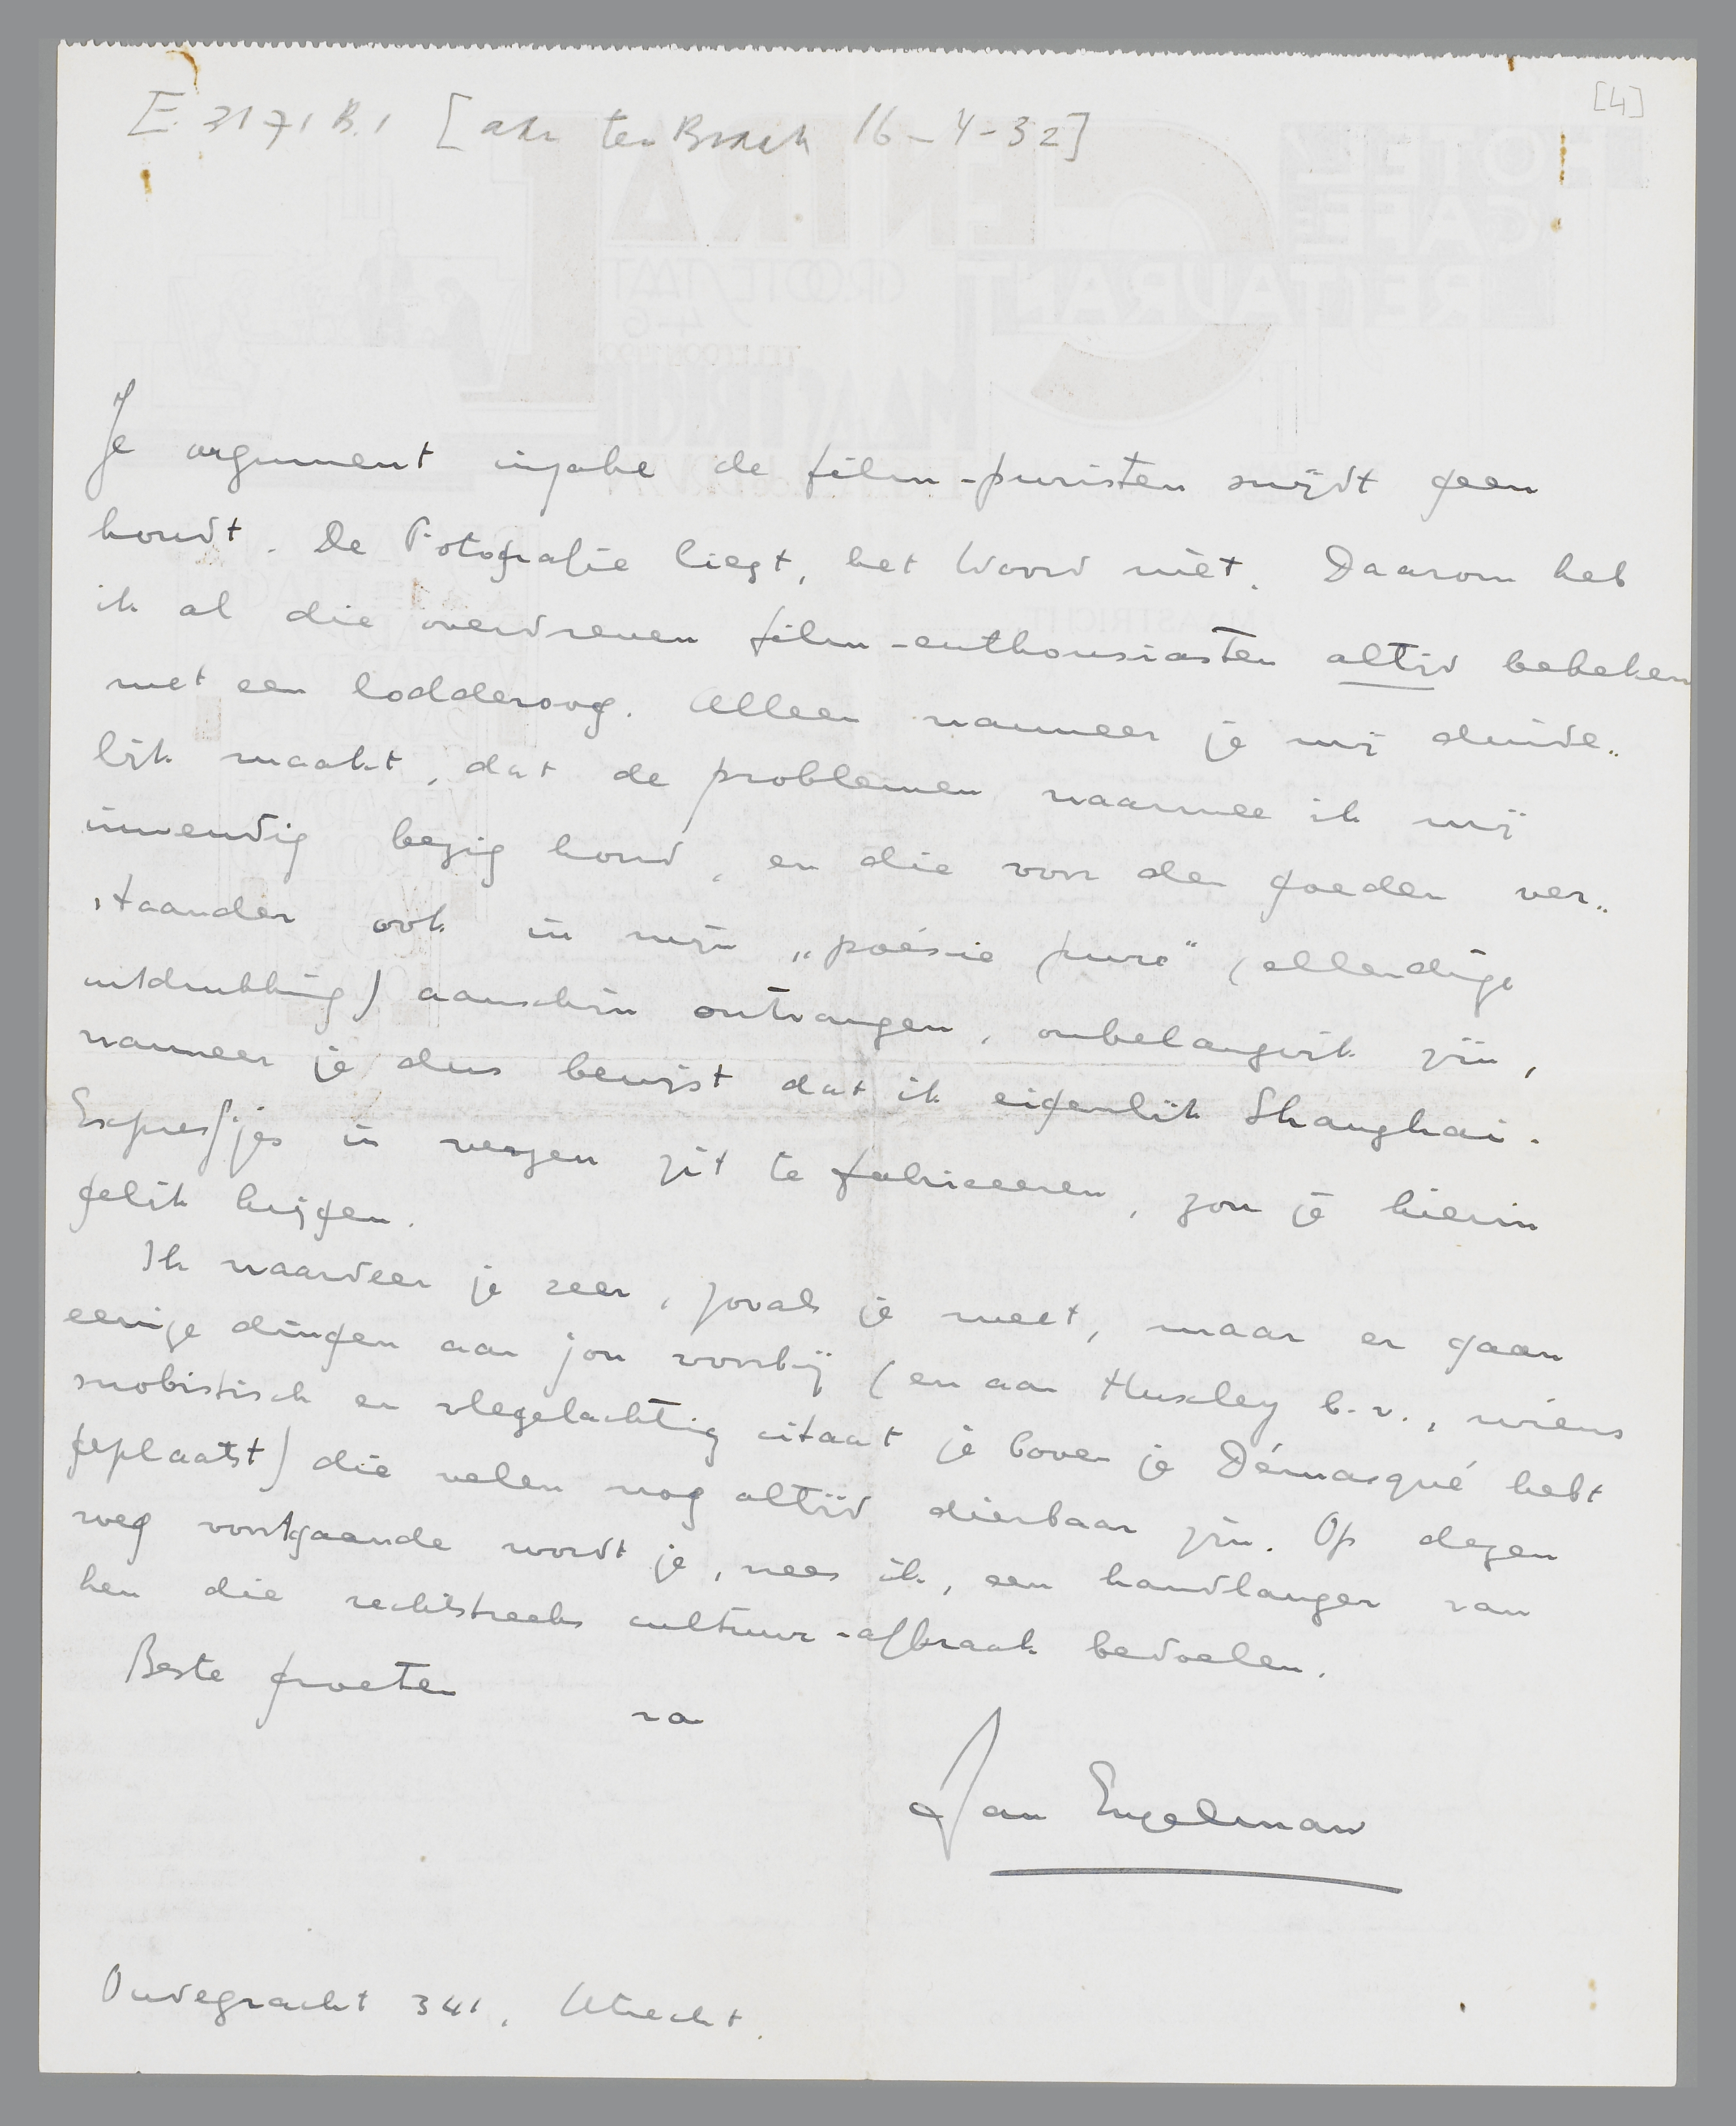 E 3171 B.1 [aan ter Braak 16-4-32]
[4]
Je argument inzake de film-puristen snijdt geen
houdt. De Fotografie liegt, het Woord niet. Daarom heb
ik al die overdreven film-enthousiasten altijd bekeken
met een lodderoog. Alleen wanneer je mij duide„
lijk maakt, dat de problemen waarmee ik mij
inwendig bezig houd, en die voor den goeden ver„
staander ook in mijn „poésie pure” (ellendige
uitdrukking) aanschijn ontvangen, onbelangrijk zijn,
wanneer je dus bewijst dat ik eigenlijk Shanghai-
Expresjes in verzen zit te fabriceeren, zou je hierin
gelijk krijgen.
Ik waardeer je zeer, zoals je weet, maar er gaan
eenige dingen aan jou voorbij (en aan Huxley b.v., wiens
snobistisch en vlegelachtig citaat je boven je Démasqué hebt
geplaatst) die velen nog altijd dierbaar zijn. Op dezen
weg voortgaande wordt je, vrees ik, een handlanger van
hen die rechtstreeks cultuur-afbraak bedoelen.
Beste groeten
van
Jan Engelman
Oudegracht 341, Utrecht.